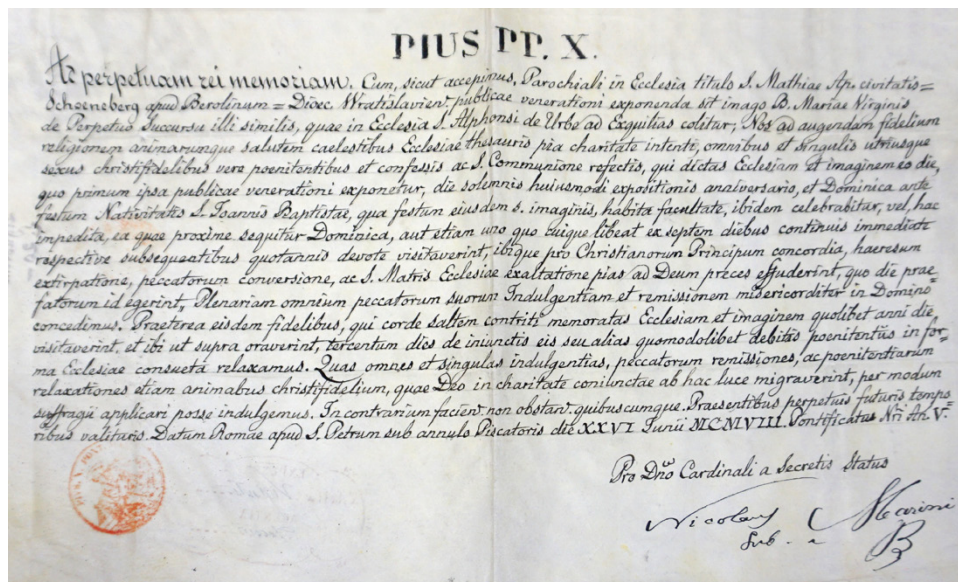 PIUS PP. X.
Ad perpetuam rei memoriam. Cum, sicut accepimus, Parochiali in Ecclesia titulo S. Mathiae Ap. civitatis=
Schoeneberg apud Berolinum = Dioec. Wratislavien. publicae venerationi exponenda sit imago B. Mariae Virginis
de Perpetuo Succursu illi similis, quae in Ecclesia S. Alphonsi de Urbe ad Exquilias colitur; Nos ad augendam fidelium
religionem animarumque salutem caelestibus Ecclesiae thesauris pia charitate intenti, omnibus et singulis utriusque
sexus christifidelibus vere poenitentibus et confessis ac S. Communione refectis, qui dictas Ecclesiam et imaginem eo die,
quo primum ipsa publicae venerationi exponetur, die solemnis huiusmodi expositionis anniversario, et Dominica ante
festum Nativitatis S. Ioannis Baptistae, qua festum eiusdem s. imaginis, habita facultate, ibidem celebrabitur, vel, hac
impedita, ea quae proxime sequitur Dominica, aut etiam uno quo cuique libeat ex septem diebus continuis immediate
respective subsequentibus quotannis devote visitaverint, ibique pro Christianorum Principum concordia, haeresum
extirpatione, peccatorum conversione, ac S. Matris Ecclesiae exaltatione pias ad Deum preces effuderint, quo die prae=
fatorum id egerint, Plenariam omnium peccatorum suorum Indulgentiam et remissionem misericorditer in Domino
concedimus. Praeterea eisdem fidelibus, qui corde saltem contriti memoratas Ecclesiam et imaginem quolibet anni die
visitaverint, et ibi ut supra oraverint, tercentum dies de iniunctis eis seu alias quomodolibet debitis poenitentiis in for=
ma Ecclesiae consueta relaxamus. Quas omnes et singulas indulgentias, peccatorum remissiones, ac poenitentiarum
relaxationes etiam animabus christifidelium, quae Deo in charitate coniunctae ab hac luce migraverint, per modum
suffragii applicari posse indulgemus. In contrarium facien. non obstan. quibuscumque. Praesentibus perpetuis futuris tempo=
ribus valituris. Datum Romae apud S. Petrum sub annulo Piscatoris die XXVI Iunii MCMVIII. Pontificatus Nri An. V.
Pro Dno Cardinali a Secretis Status
Nicolaus Marini
Sub.